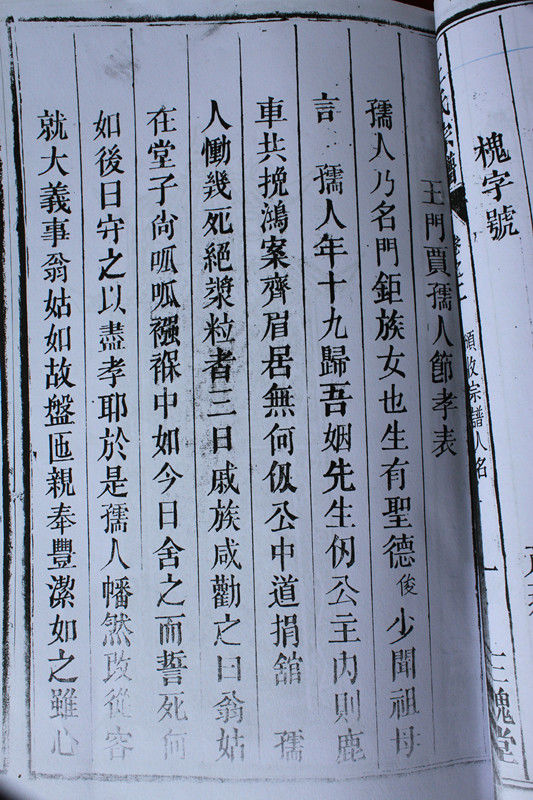 槐字號
三槐堂
王門賈孺人節孝表
孺人乃名門鉅族女也生有聖德俊少聞祖母
言孺人年十九歸吾姻先生伋公主內則鹿
車共挽鴻案齊眉居無何伋公中道捐舘孺
人慟幾死絕漿粒者三日戚族咸勸之曰翁姑
在堂子尙呱呱襁褓中如今日舍之而誓死何
如後日守之以盡孝耶於是孺人幡然改從容
就大義事翁姑如故盤匜親奉豐潔如之雖心